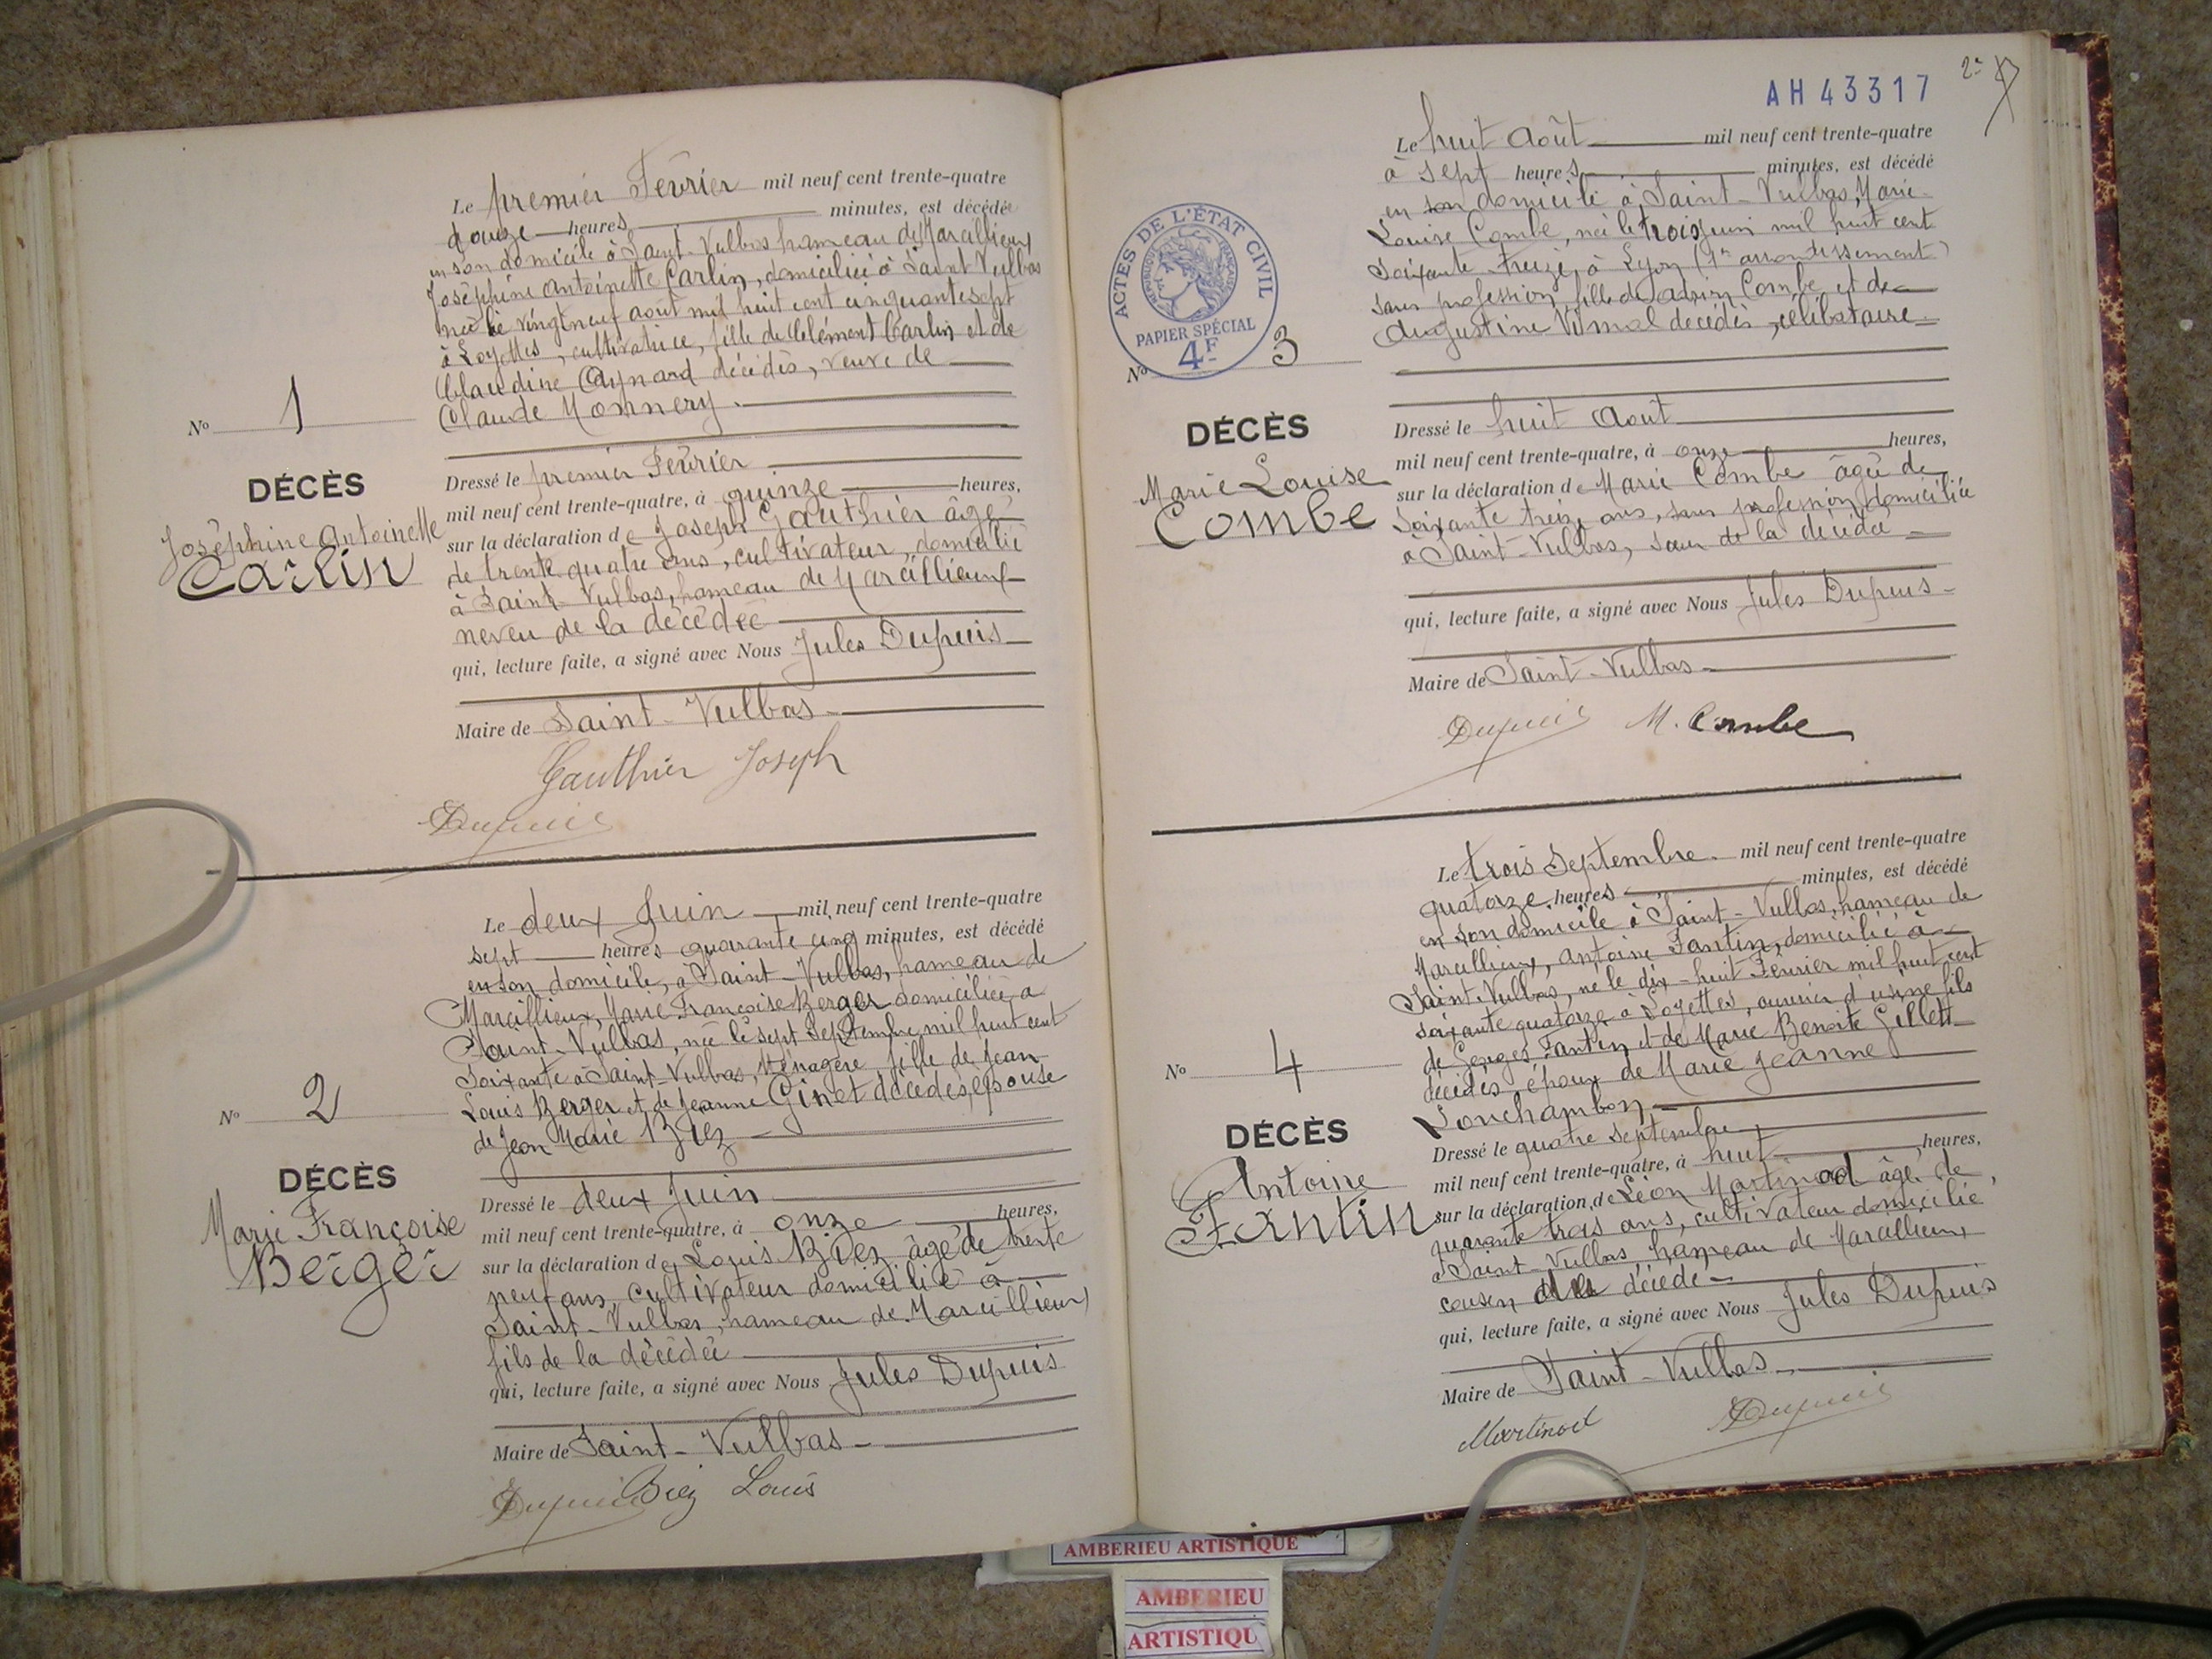 Le premier Février mil neuf cent trente-quatre
douze heures minutes, est décédée
en son domicile à Saint-Vulbas hameau de Marcillieux
Joséphine Antoinette Carlin, domiciliée à Saint Vulbas
née le vingt neuf août mil huit cent cinquante sept
à Loyettes, cultivatrice, fille de Clément Carlin et de
Claudine Aynard décédés, veuve de
Claude Monnery.
No 1
DÉCÈS
Joséphine Antoinette
Carlin
Dressé le premier Février
mil neuf cent trente-quatre, à quinze heures,
sur la déclaration de Joseph Gauthier âgé
de trente quatre ans, cultivateur, domicilié
à Saint-Vulbas, hameau de Marcillieux
neveu de la décédée
qui, lecture faite, a signé avec Nous Jules Dupuis
Maire de Saint-Vulbas
Gauthier Joseph
Dupuis
Le deux Juin mil neuf cent trente-quatre
sept heures quarante cinq minutes, est décédé
en son domicile, à Saint-Vulbas, hameau de
Marcillieux, Marie Françoise Berger domiciliée à
Saint-Vulbas, née le sept Septembre mil huit cent
soixante à Saint-Vulbas, Ménagère, fille de Jean
Louis Berger et de Jeanne Ginet décédés, épouse
de Jean Marie Biez
No 2
DÉCÈS
Marie Françoise
Berger
Dressé le deux Juin
mil neuf cent trente-quatre, à onze heures,
sur la déclaration de Louis Biez âgé de trente
neuf ans, cultivateur domicilié à
Saint-Vulbas, hameau de Marcillieux
fils de la décédée
qui, lecture faite, a signé avec Nous Jules Dupuis
Maire de Saint-Vulbas
Dupuis Biez Louis
AH 43317
2e
Le huit Août mil neuf cent trente-quatre
à sept heures minutes, est décédé
en son domicile à Saint-Vulbas, Marie
Louise Combe, née le trois juin mil huit cent
soixante-treize, à Lyon (1er arrondissement)
sans profession, fille de Adrien Combe et de
Augustine Vimal décédés, célibataire
ACTES DE L'ÉTAT CIVIL
RÉPUBLIQUE FRANÇAISE
PAPIER SPÉCIAL
4F
No 3
DÉCÈS
Marie Louise
Combe
Dressé le huit Août
mil neuf cent trente-quatre, à onze heures,
sur la déclaration de Marie Combe âgée de
soixante treize ans, sans profession, domiciliée
à Saint-Vulbas, sœur de la décédée
qui, lecture faite, a signé avec Nous Jules Dupuis
Maire de Saint-Vulbas
Dupuis M. Combe
Le trois Septembre mil neuf cent trente-quatre
quatorze heures minutes, est décédé
en son domicile à Saint-Vulbas, hameau de
Marcillieux, Antoine Fantin, domicilié à
Saint-Vulbas, né le dix-huit Février mil huit cent
soixante quatorze à Loyettes, ouvrier d'usine fils
de Georges Fantin et de Marie Benoite Gillett
décédés, époux de Marie Jeanne
Lonchambon
No 4
DÉCÈS
Antoine
Fantin
Dressé le quatre Septembre
mil neuf cent trente-quatre, à huit heures,
sur la déclaration de Léon Martinod âgé de
quarante trois ans, cultivateur domicilié
à Saint-Vulbas, hameau de Marcillieux
cousin du décédé
qui, lecture faite, a signé avec Nous Jules Dupuis
Maire de Saint-Vulbas
Martinod Dupuis
AMBERIEU ARTISTIQUE
AMBERIEU
ARTISTIQU